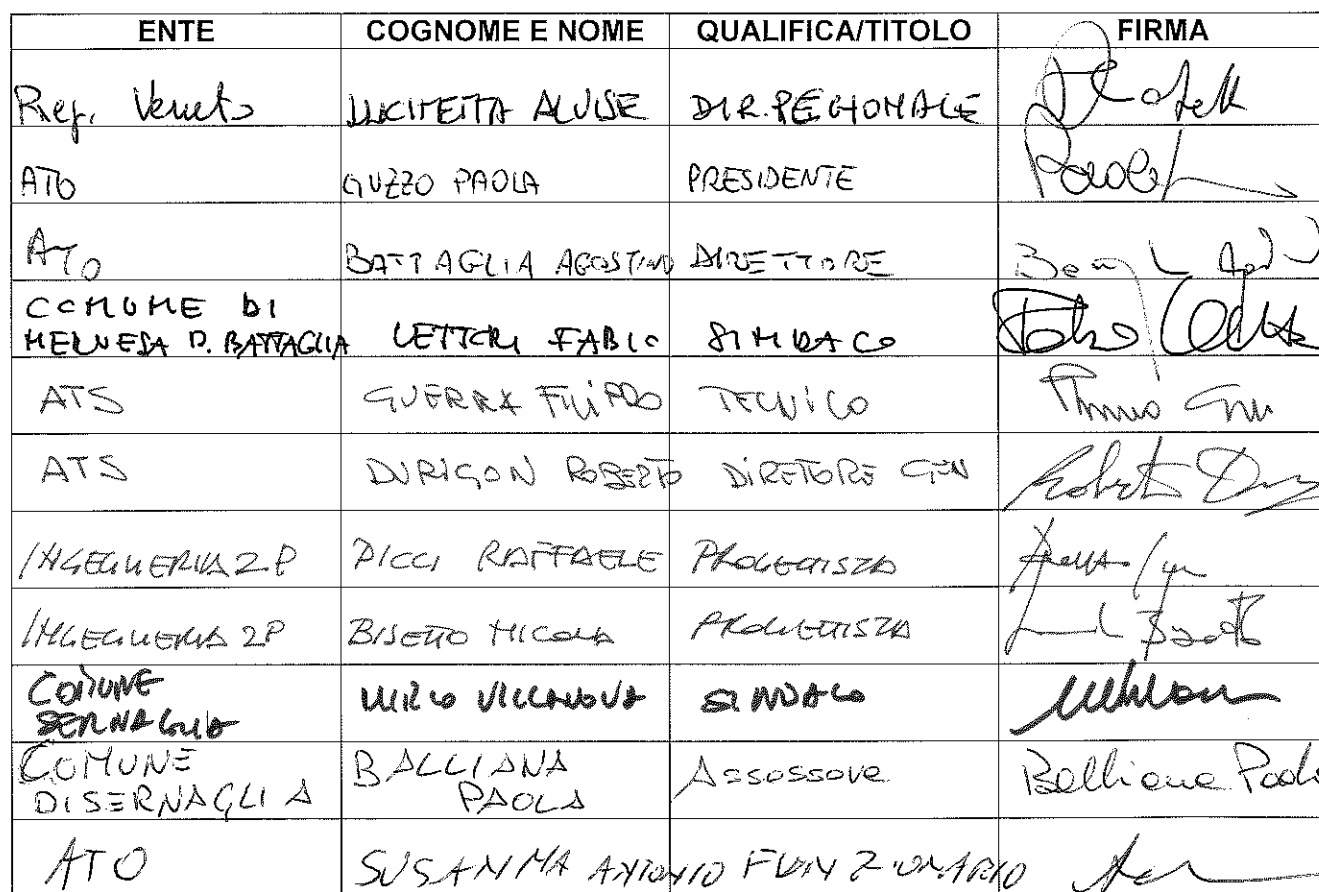 ENTE COGNOME E NOME QUALIFICA/TITOLO FIRMA
Reg. Veneto LUCHETTA ALVISE DIR. REGIONALE
ATO GUZZO PAOLA PRESIDENTE
ATO BATTAGLIA AGOSTINO DIRETTORE
COMUNE DI
NERVESA D. BATTAGLIA LETTORI FABIO SINDACO
ATS GUERRA FILIPPO TECNICO
ATS DURIGON ROBERTO DIRETORE GEN
INGEGNERIA 2P PICCI RAFFAELE PROGETTISTA
INGEGNERIA 2P BISETTO NICOLA PROGETTISTA
COMUNE
SERNAGLIA MIRCO VILLANOVA SINDACO
COMUNE BALLIANA Assessore Balliana Paola
DI SERNAGLIA PAOLA
ATO SUSANNA ANTONIO FUNZIONARIO